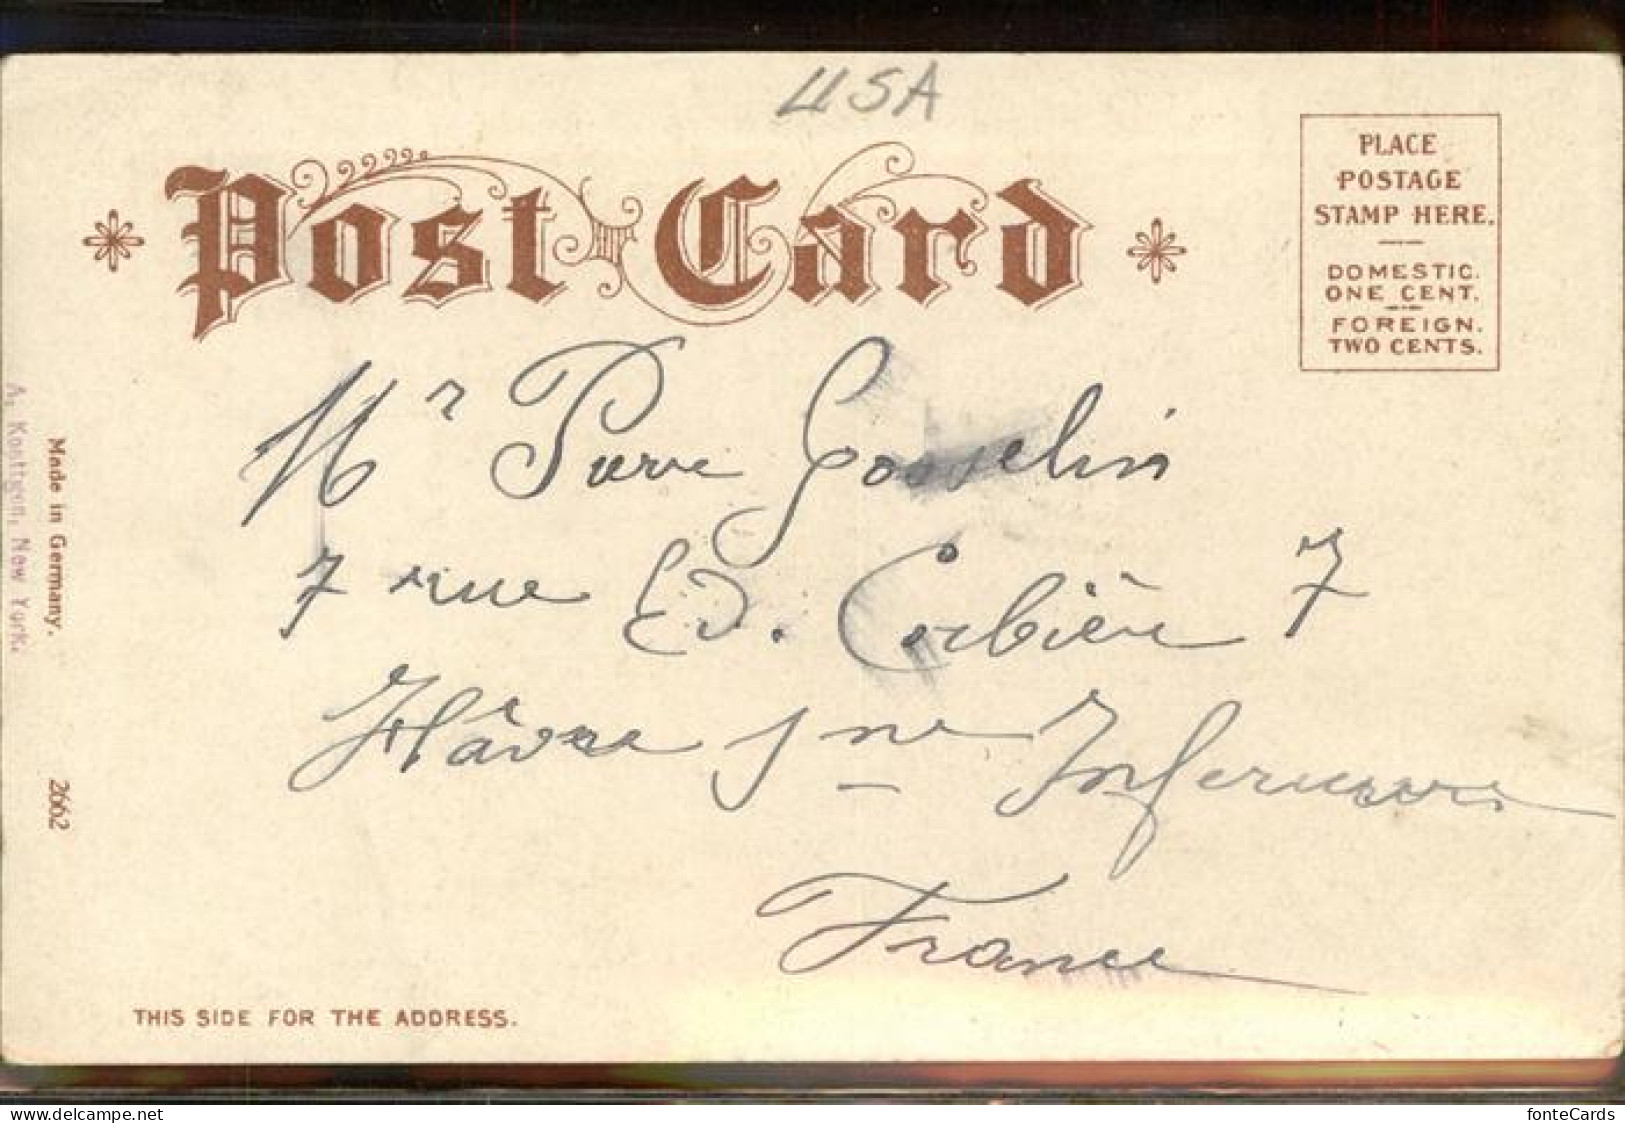 USA
Post Card
PLACE
POSTAGE
STAMP HERE.
DOMESTIC.
ONE CENT.
FOREIGN.
TWO CENTS.
Mr Pierre Gosselin
7 rue Ed. Corbière 7
Hâvre Sne Inférieure
France
A. Koettgen, New York.
Made in Germany.
2662
THIS SIDE FOR THE ADDRESS.
www.delcampe.net
fonteCards